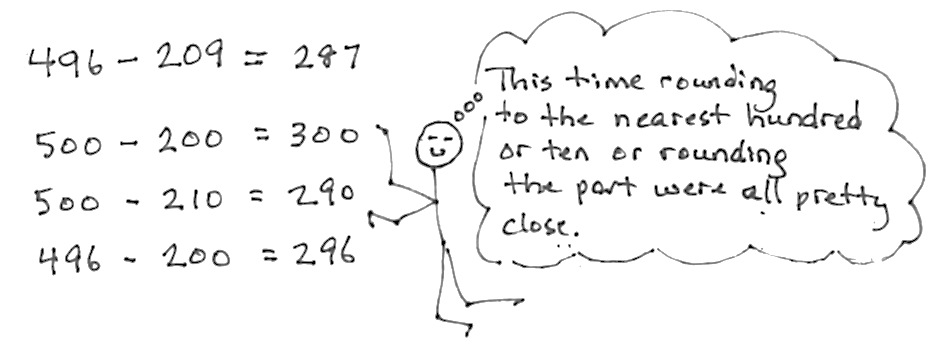 496 - 209 = 287
500 - 200 = 300
500 - 210 = 290
496 - 200 = 296
This time rounding
to the nearest hundred
or ten or rounding
the part were all pretty
close.